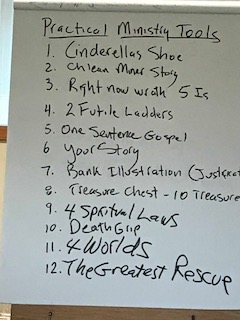 Practical Ministry Tools
1. Cinderellas Shoe
2. Chilean Miner Story
3. Right now wrath 5 Is
4. 2 Futile Ladders
5. One Sentence Gospel
6 Your Story
7. Bank Illustration
8. Treasure Chest - 10 Treasure
9. 4 Spritual Laws
10. Death Grip
11. 4 Worlds
12. The Greatest Rescue